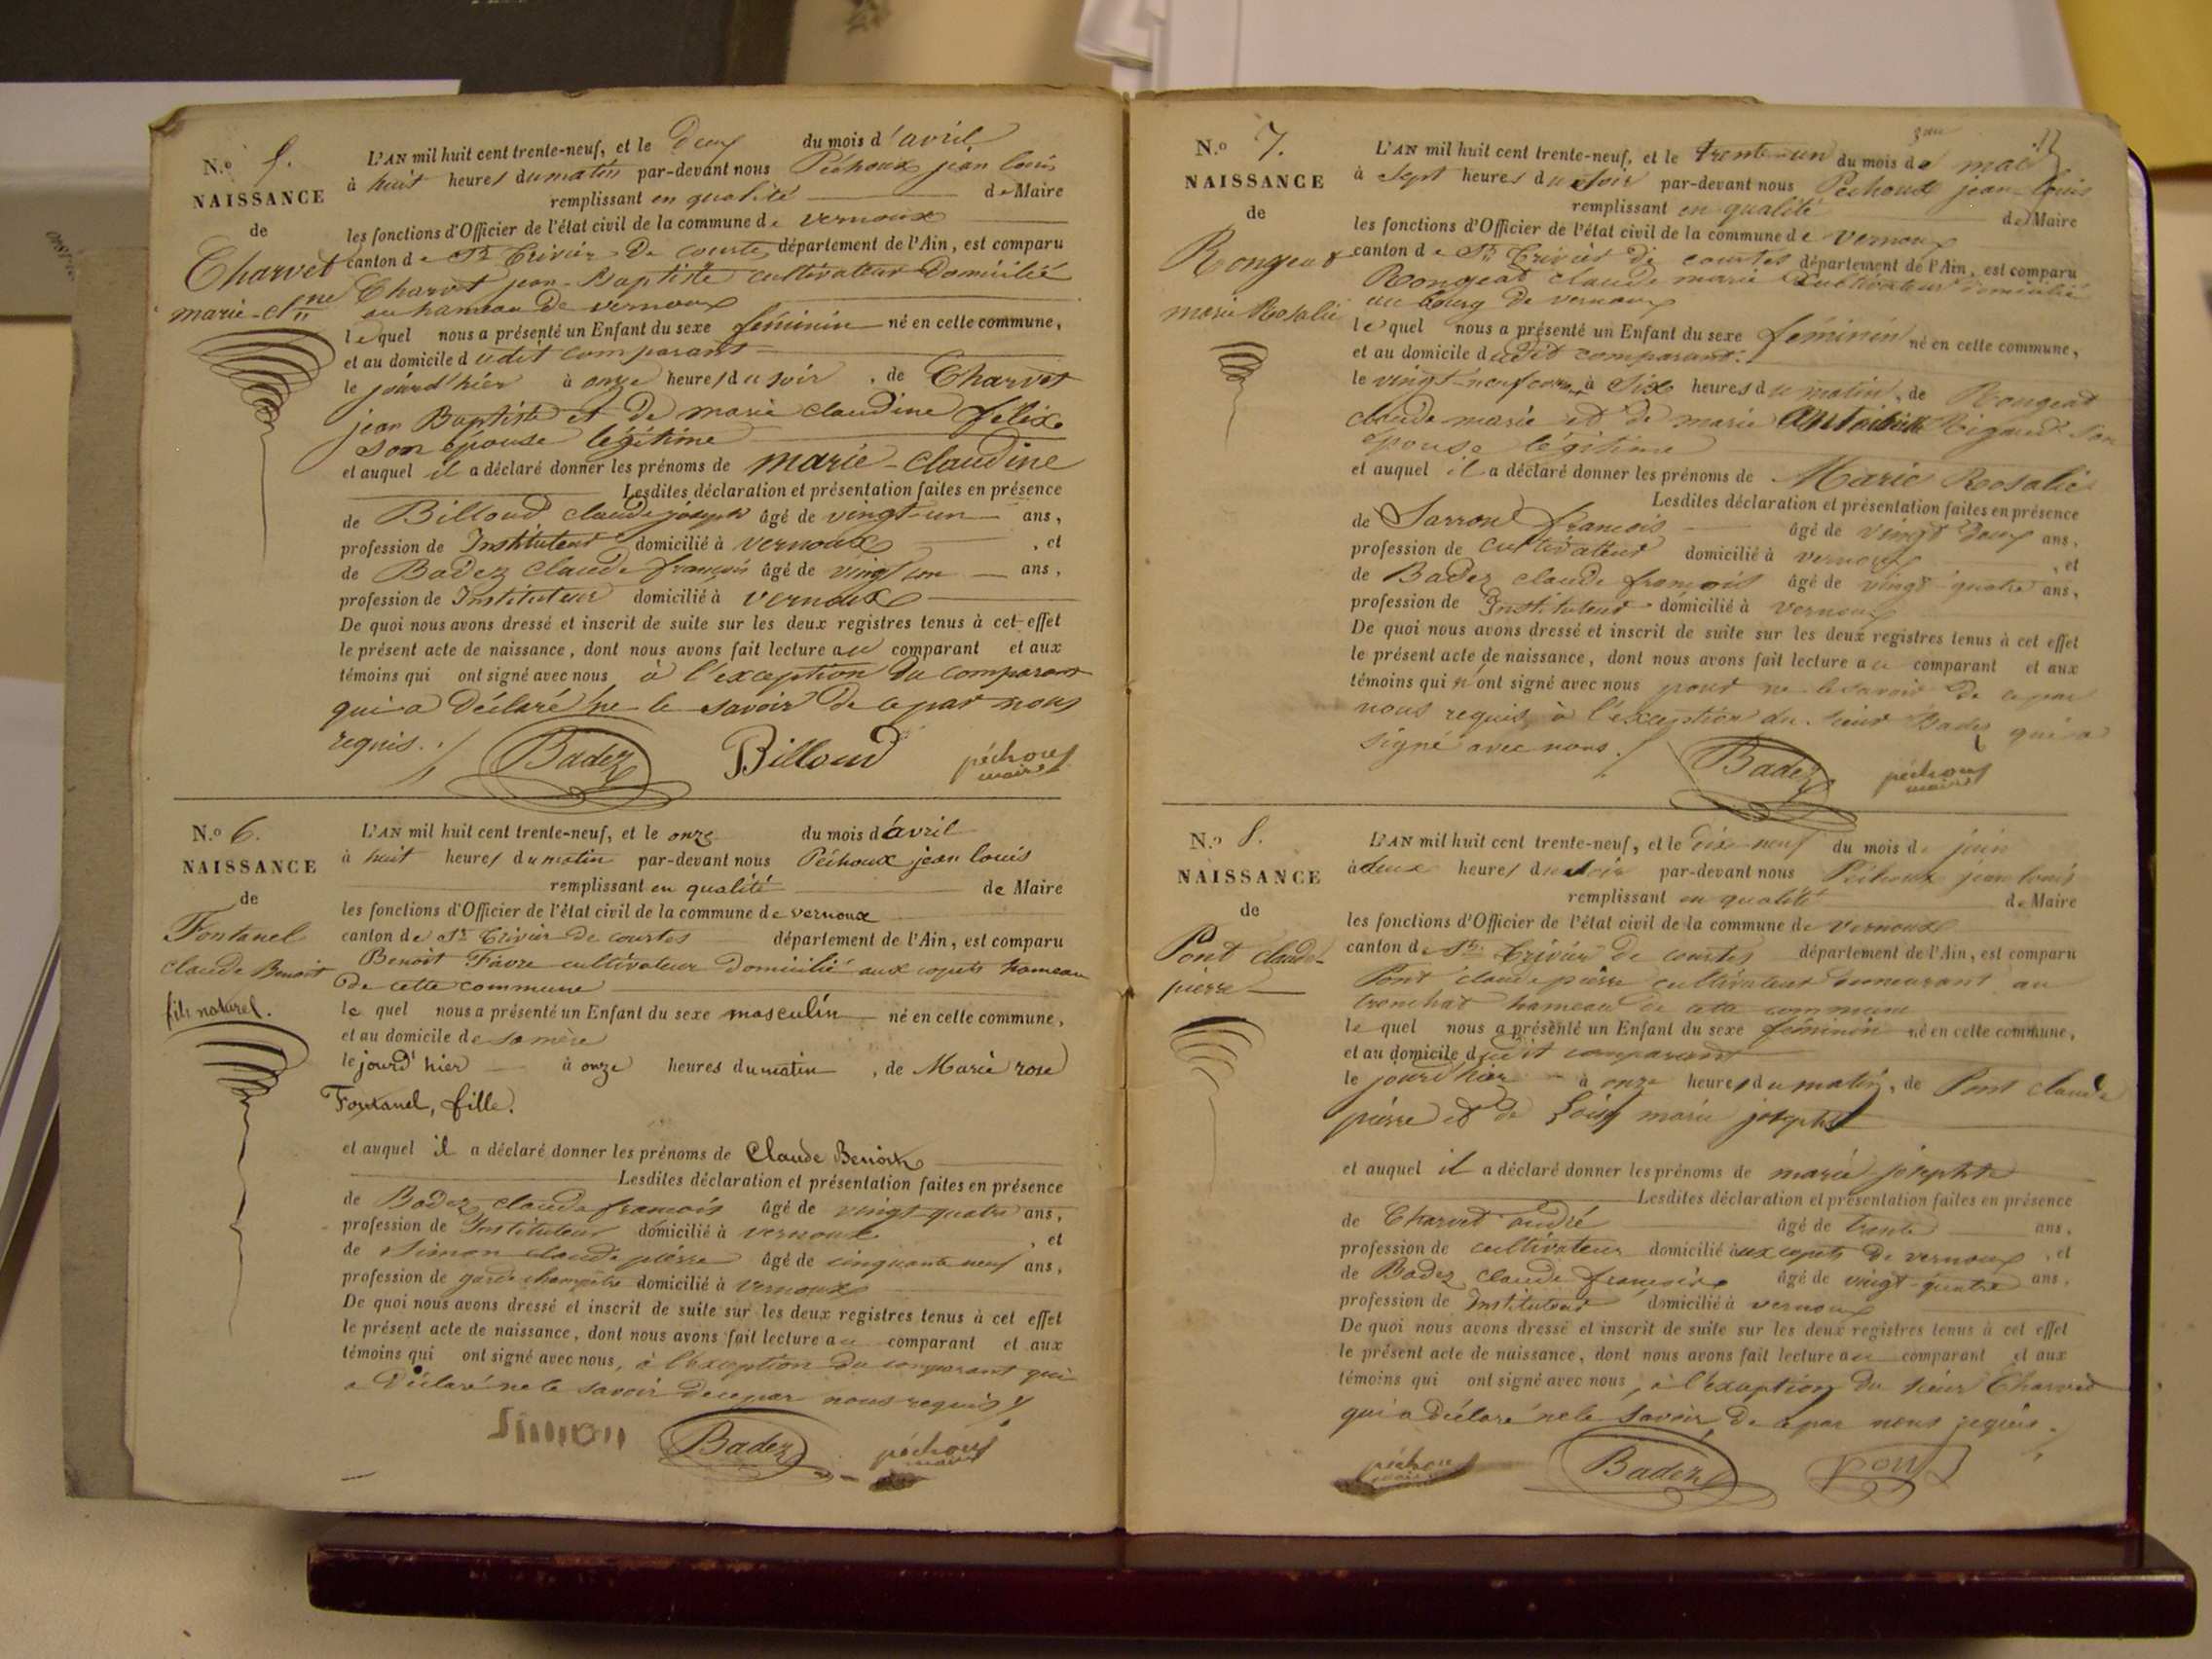 N.o 5.
NAISSANCE
de
Charvet
marie-Cl.ne
L'AN mil huit cent trente-neuf, et le deux du mois d'avril
à huit heures du matin par-devant nous Péchoux jean louis
remplissant en qualité de Maire
les fonctions d'Officier de l'état civil de la commune de vernoux
canton de St Trivier De courtes département de l'Ain, est comparu
Charvet jean-Baptiste cultivateur Domicilié
au hameau De vernoux
lequel nous a présenté un Enfant du sexe féminin né en cette commune,
et au domicile dudit comparant
le jourd'hier à onze heures du soir, de Charvet
jean Baptiste et De marie claudine félix
son épouse légitime
et auquel il a déclaré donner les prénoms de marie-claudine
Lesdites déclaration et présentation faites en présence
de Billoud claude joseph âgé de vingt-un ans,
profession de Instituteur domicilié à vernoux, et
de Badez claude françois âgé de vingt un ans,
profession de Instituteur domicilié à vernoux
De quoi nous avons dressé et inscrit de suite sur les deux registres tenus à cet effet
le présent acte de naissance, dont nous avons fait lecture au comparant et aux
témoins qui ont signé avec nous à l'exception du comparant
qui a Déclaré ne le savoir De ce par nous
requis.
Badez Billoud péchoux
maire
N.o 6.
NAISSANCE
de
Fontanel
claude Benoit
fils naturel.
L'AN mil huit cent trente-neuf, et le onze du mois d'avril
à huit heures du matin par-devant nous Péchoux jean louis
remplissant en qualité de Maire
les fonctions d'Officier de l'état civil de la commune de vernoux
canton de St Trivier De courtes département de l'Ain, est comparu
Benoit Favre cultivateur Domicilié aux copets hameau
De cette commune
le quel nous a présenté un Enfant du sexe masculin né en cette commune,
et au domicile de sa mère
le jourd'hier à onze heures du matin, de Marie rose
Fontanel, fille.
et auquel il a déclaré donner les prénoms de Claude Benoit
Lesdites déclaration et présentation faites en présence
de Badez claude françois âgé de vingt-quatre ans,
profession de Instituteur domicilié à vernoux, et
de Simon claude pierre âgé de cinquante neuf ans,
profession de garde champêtre domicilié à vernoux
De quoi nous avons dressé et inscrit de suite sur les deux registres tenus à cet effet
le présent acte de naissance, dont nous avons fait lecture au comparant et aux
témoins qui ont signé avec nous, à l'exception du comparant qui
a Déclaré ne le savoir De ce par nous requis
Simon Badez péchoux
maire
N.o 7.
NAISSANCE
de
Rongeat
marie Rosalie
L'AN mil huit cent trente-neuf, et le trente-un du mois de mai
à sept heures du soir par-devant nous Péchoux jean louis
remplissant en qualité de Maire
les fonctions d'Officier de l'état civil de la commune de vernoux
canton de St Trivier De courtes département de l'Ain, est comparu
Rongeat claude marie Cultivateur domicilié
au bourg De vernoux
lequel nous a présenté un Enfant du sexe féminin né en cette commune,
et au domicile dudit comparant
le vingt-neuf à six heures du matin, de Rongeat
claude marie et De marie Antoinette Rigaud son
épouse légitime
et auquel il a déclaré donner les prénoms de Marie Rosalie
Lesdites déclaration et présentation faites en présence
de Sarron françois âgé de vingt Deux ans,
profession de cultivateur domicilié à vernoux, et
de Badez claude françois âgé de vingt-quatre ans,
profession de Instituteur domicilié à vernoux
De quoi nous avons dressé et inscrit de suite sur les deux registres tenus à cet effet
le présent acte de naissance, dont nous avons fait lecture au comparant et aux
témoins qui n'ont signé avec nous pour ne le savoir De ce par
nous requis, à l'exception du sieur Badez qui a
signé avec nous.
Badez péchoux
maire
N.o 8.
NAISSANCE
de
Pont claude
pierre
L'AN mil huit cent trente-neuf, et le dix-neuf du mois de juin
à deux heures du soir par-devant nous Péchoux jean louis
remplissant en qualité de Maire
les fonctions d'Officier de l'état civil de la commune de vernoux
canton de St Trivier De courtes département de l'Ain, est comparu
Pont claude pierre cultivateur demeurant au
tronchat hameau de cette commune
le quel nous a présenté un Enfant du sexe féminin né en cette commune,
et au domicile dudit comparant
le jourd'hier à onze heures du matin, de Pont claude
pierre et de marie josephte
et auquel il a déclaré donner les prénoms de marie josephte
Lesdites déclaration et présentation faites en présence
de Charvet andré âgé de trente ans,
profession de cultivateur domicilié aux copets De vernoux, et
de Badez claude françois âgé de vingt-quatre ans,
profession de Instituteur domicilié à vernoux
De quoi nous avons dressé et inscrit de suite sur les deux registres tenus à cet effet
le présent acte de naissance, dont nous avons fait lecture au comparant et aux
témoins qui ont signé avec nous, à l'exception du sieur Charvet
qui a Déclaré ne le savoir, De ce par nous requis.
péchoux
maire Badez pont